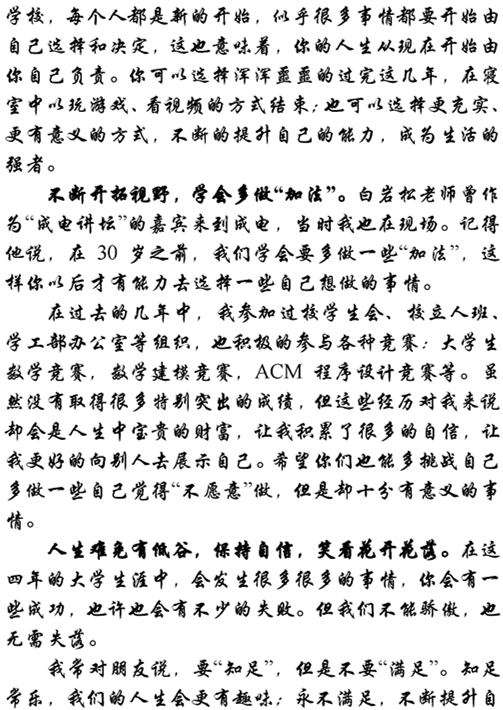 学校，每个人都是新的开始，似乎很多事情都要开始由
自己选择和决定，这也意味着，你的人生从现在开始由
你自己负责。你可以选择浑浑噩噩的过完这几年，在寝
室中以玩游戏、看视频的方式结束；也可以选择更充实、
更有意义的方式，不断的提升自己的能力，成为生活的
强者。
不断开拓视野，学会多做“加法”。白岩松老师曾作
为“成电讲坛”的嘉宾来到成电，当时我也在现场。记得
他说，在 30 岁之前，我们学会要多做一些“加法”，这
样你以后才有能力去选择一些自己想做的事情。
在过去的几年中，我参加过校学生会、校立人班、
学工部办公室等组织，也积极的参与各种竞赛：大学生
数学竞赛，数学建模竞赛，ACM 程序设计竞赛等。虽
然没有取得很多特别突出的成绩，但这些经历对我来说
却会是人生中宝贵的财富，让我积累了很多的自信，让
我更好的向别人去展示自己。希望你们也能多挑战自己
多做一些自己觉得“不愿意”做，但是却十分有意义的事
情。
人生难免有低谷，保持自信，笑看花开花落。在这
四年的大学生涯中，会发生很多很多的事情，你会有一
些成功，也许也会有不少的失败。但我们不能骄傲，也
无需失落。
我常对朋友说，要“知足”，但是不要“满足”。知足
常乐，我们的人生会更有趣味；永不满足，不断提升自